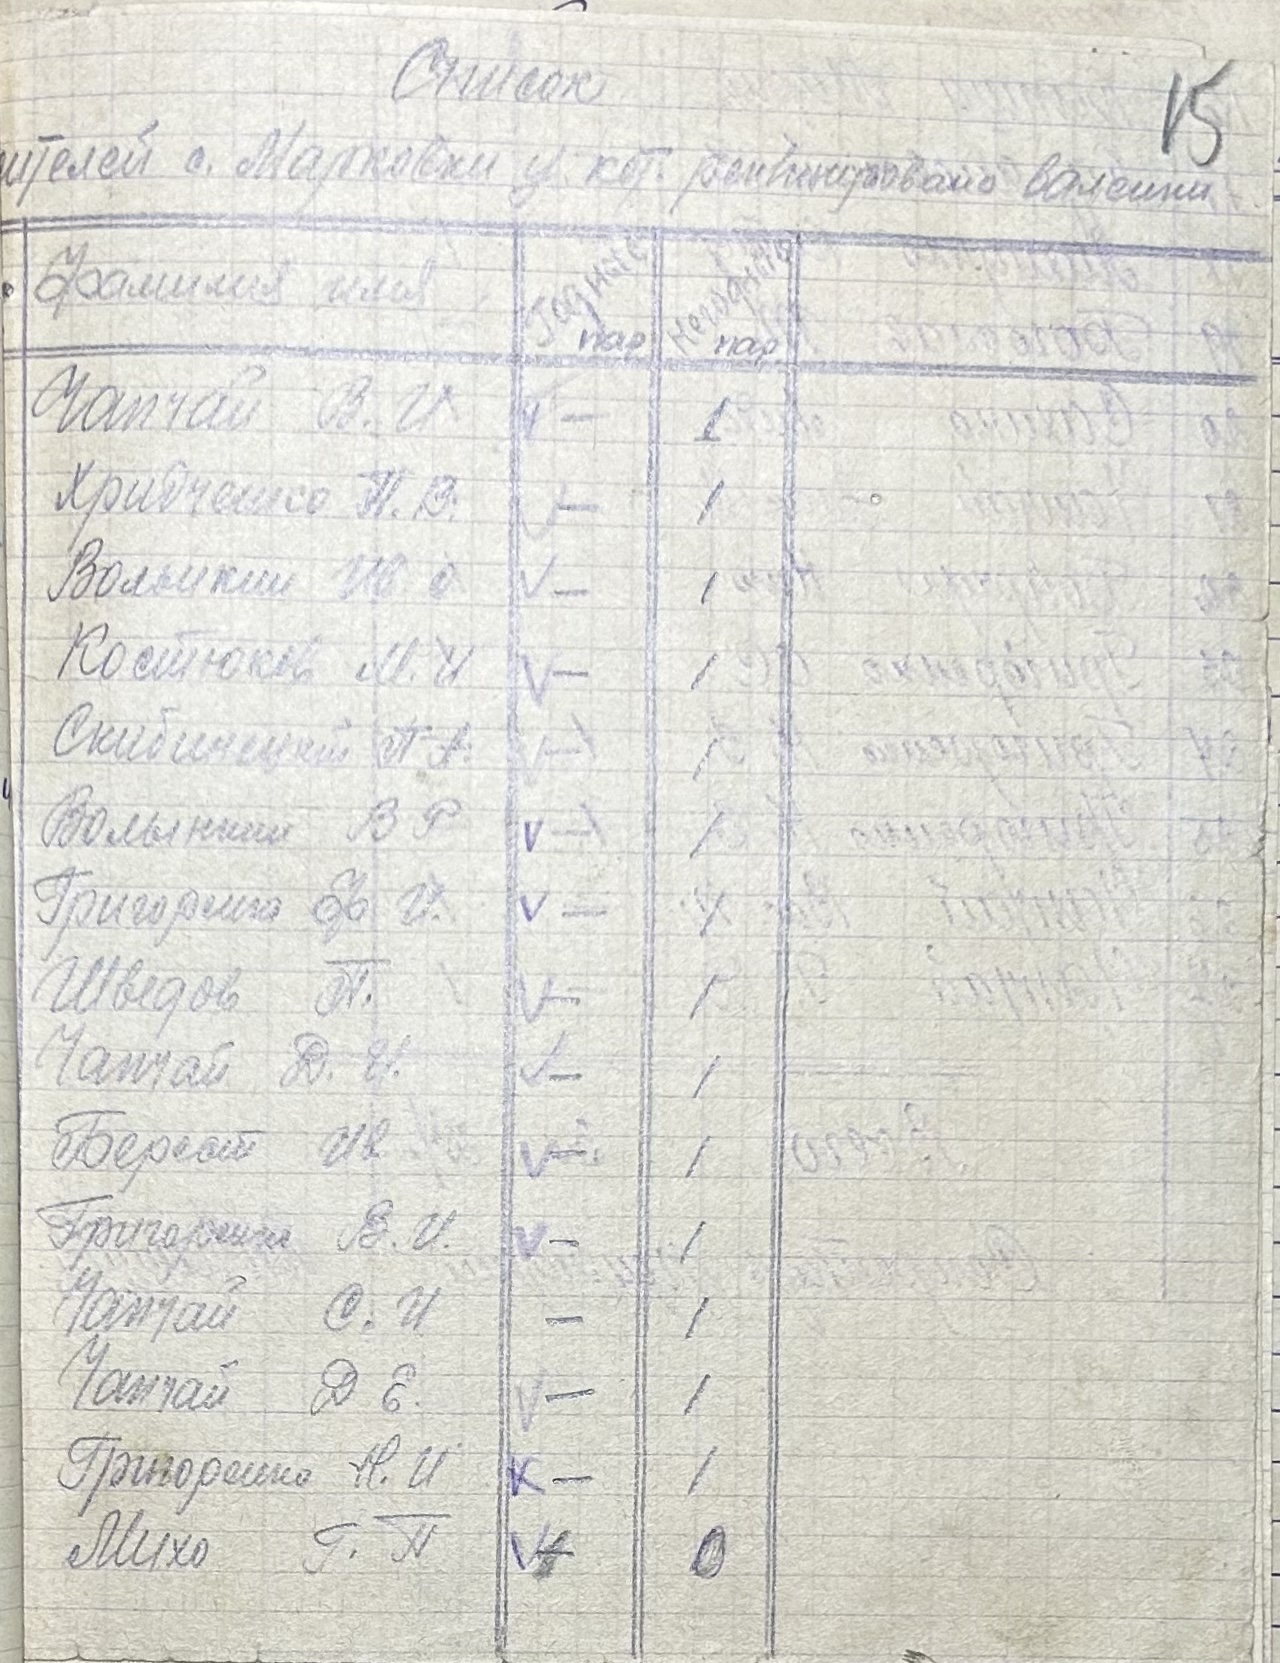 15
Список
ителей с. Марковки у кот. реквизировано валенки
Фамилия имя Годные пар Негодные пар
Чапчай В. И. V — 1
Хридченко П. В. V — 1
Волынкин V — 1
Костюков М. И V — 1
Скибинецкий П. А. V — 1
Волынкин В Р V — 1
Григоренко Ф. И. V — 1
Шведов П. V — 1
Чапчай Д. И. V — 1
Берсот Ив V — 1
Григоренко Е. И. V — 1
Чапчай С. И — 1
Чапчай Д Е. V — 1
Григоренко Н. И х — 1
Михо Г. П V 1 0